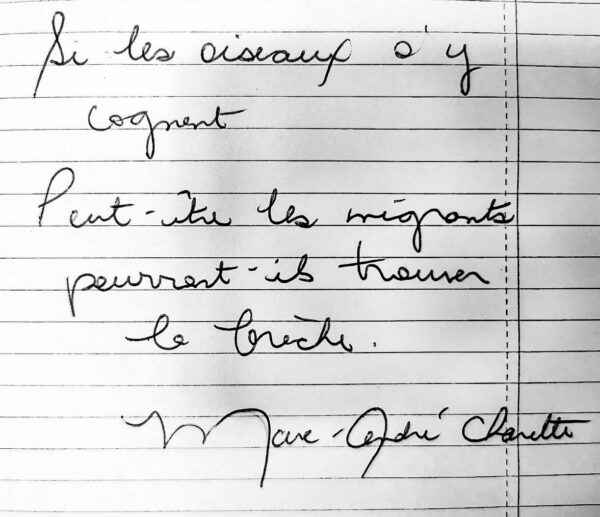 Si les oiseaux s'y
cognent
Peut-être les migrants
pourront-ils trouver
la brèche.
Marc-André Charette